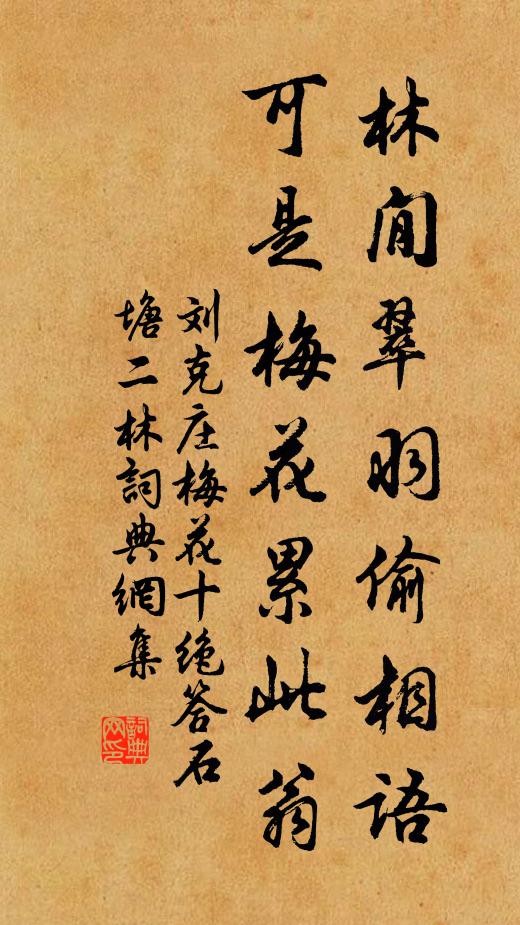 林間翠羽偷相語
可是梅花累此翁
刘克庄梅花十绝答石
塘二林詞典網集
詞典网印